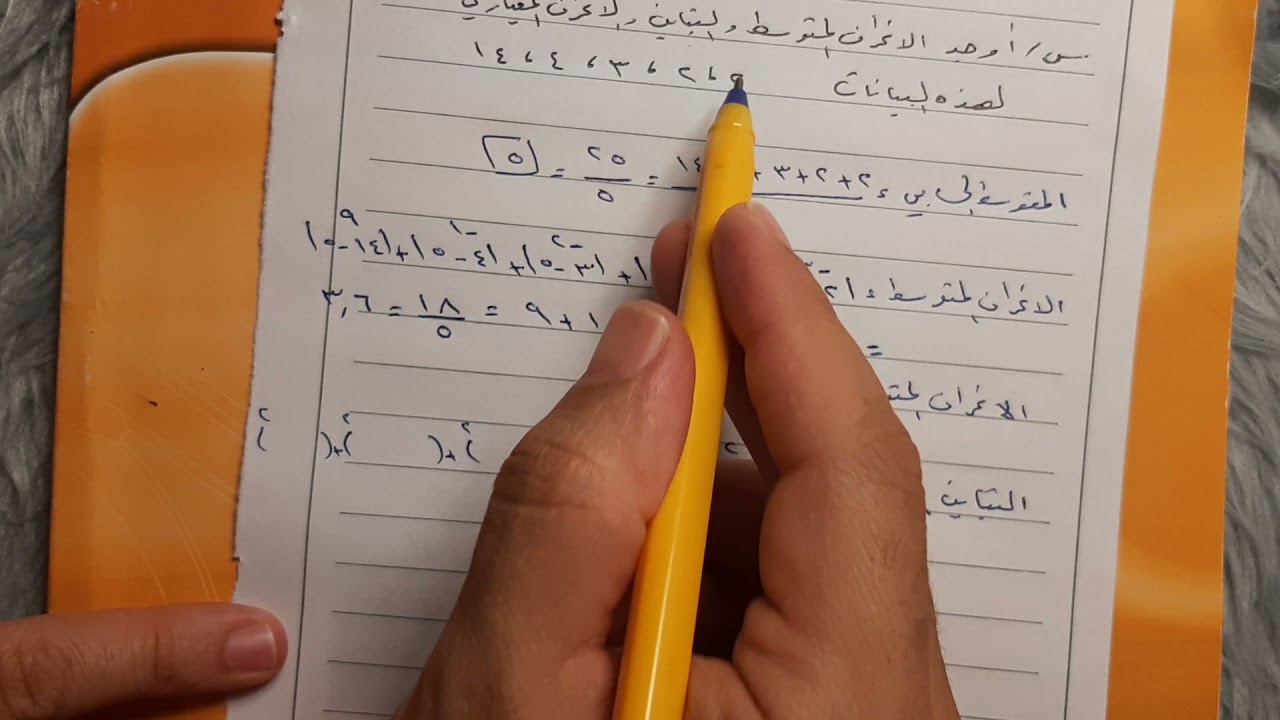 س/ أوجد الانحراف المتوسط والتباين والانحراف المعياري
لهذه البيانات ٢، ٢، ٣، ٤، ١٤
المتوسط الحسابي = ٢+٢+٣+ ١٤ / ٥ = ٢٥ / ٥ = ٥
الانحراف المتوسط = |٢ | + |٣-٥| + |٤-٥| + |١٤-٥|
-٢ -١ ٩
= ١ + ٩ = ١٨ / ٥ = ٣,٦
الانحراف
٢ )+( )٢ +( )٢ +( )٢
التباين